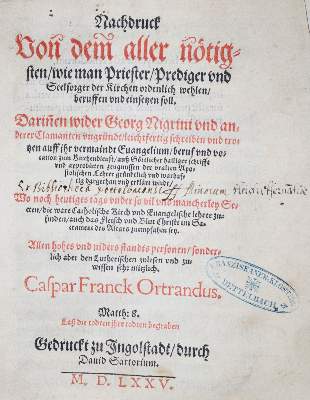 Nachdruck
Von dem aller nötig-
sten/wie man Priester/Prediger vnd
Seelsorger der Kirchen ordenlich wehlen/
beruffen vnd einsetzen soll.
Dariñen wider Georg Nigrini vnd an-
derer Clamanten vngründt/leichtfertig schreiben vnd tro-
tzen auff jhr vermaindt Euangelium/beruf vnd vo-
cation zum Kirchendienst/auß Göttlicher hailiger schrifft
vnd approbierten zeugnussen der vralten Apo-
stolischen Lehrer gründtlich vnd warhaff-
tig dargethan vnd erklärt wirdt/
Ex Bibliotheca
Wo noch heutiges tags vnder so vil vnd mancherley Se-
cten/die ware Catholische Kirch vnd Euangelische lehre zu
finden/auch das Fleisch vnd Blut Christi im Sa-
crament des Altars zuempfahen sey.
Allen hohes vnd niders standts personen/sonder-
lich aber den Lutherischen zulesen vnd zu
wissen sehr nützlich.
Caspar Franck Ortrandus.
FRANZISKANER-KLOSTER
DETTELBACH
Matth: 8.
Laß die todten jhre todten begraben
Gedruckt zu Ingolstadt/durch
Dauid Sartorium.
M. D. LXXV.